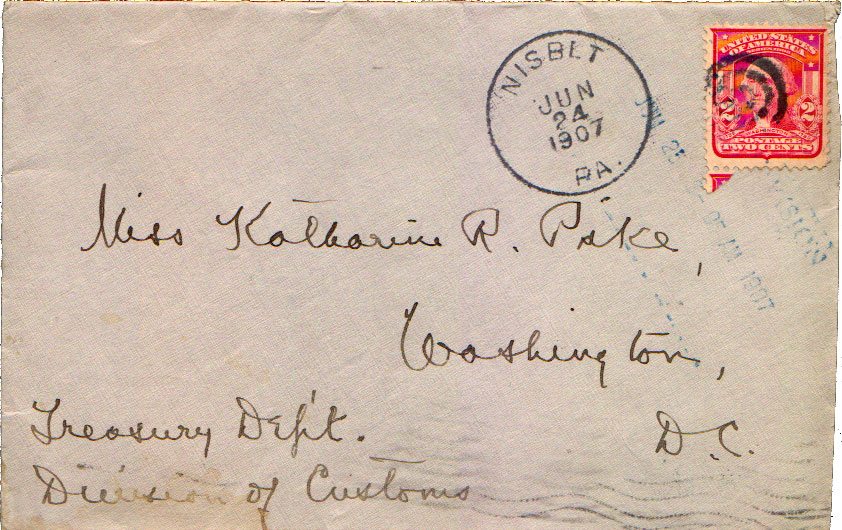 NISBET
JUN
24
1907
PA.
UNITED STATES
OF AMERICA
2 2
POSTAGE
TWO CENTS
1907
Miss Katharine R. Pike,
Washington,
D.C.
Treasury Dep't.
Division of Customs